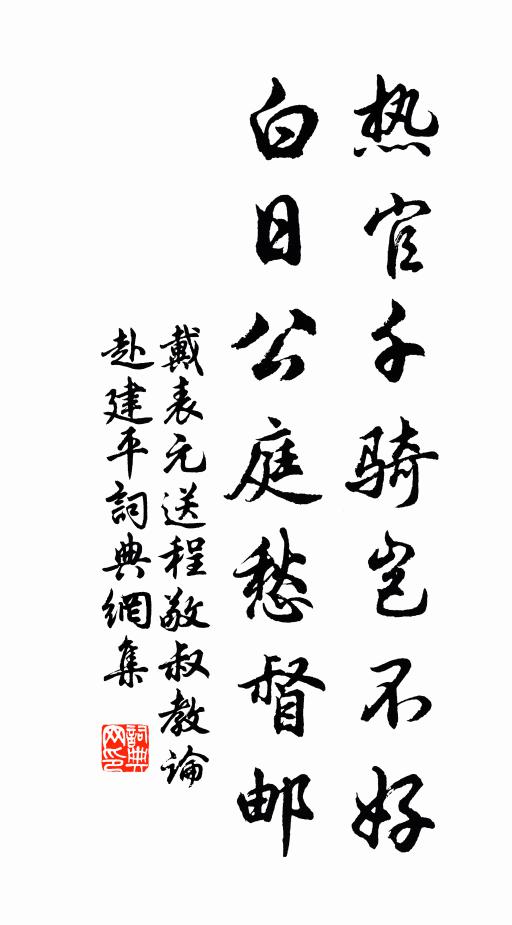 热官千骑岂不好
白日公庭愁督邮
戴表元送程敬叔教論
赴建平詞典網集
詞典
网印